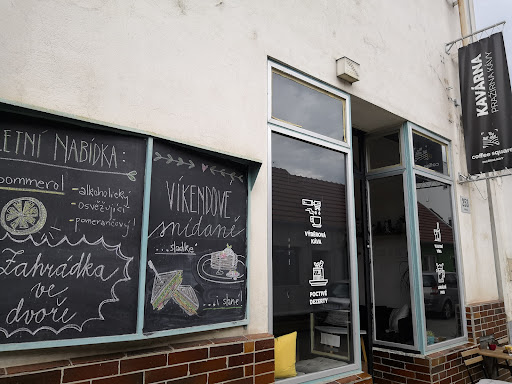 LETNÍ NABÍDKA:
pommerol
-alkoholický
-osvěžující
-pomerančový!
Zahrádka
ve
dvoře
VÍKENDOVÉ
snídaně
...sladké
...i slané!
VÝBĚROVÁ
KÁVA
POCTIVÉ
DEZERTY
KAVÁRNA
PRAŽÍRNA KÁVY
coffee square